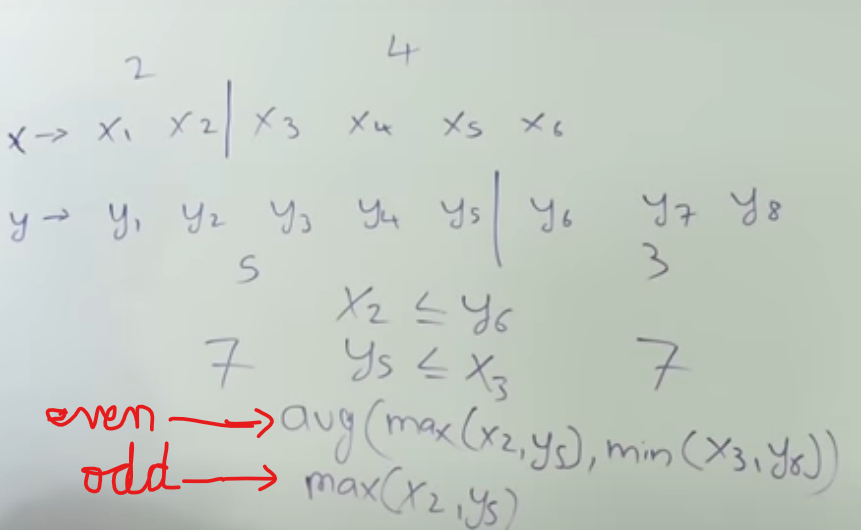 2 4
x → x₁ x₂ | x₃ x₄ x₅ x₆
y → y₁ y₂ y₃ y₄ y₅ | y₆ y₇ y₈
5 3
x₂ ≤ y₆
7 y₅ ≤ x₃ 7
even → avg(max(x₂, y₅), min(x₃, y₆))
odd → max(x₂, y₅)